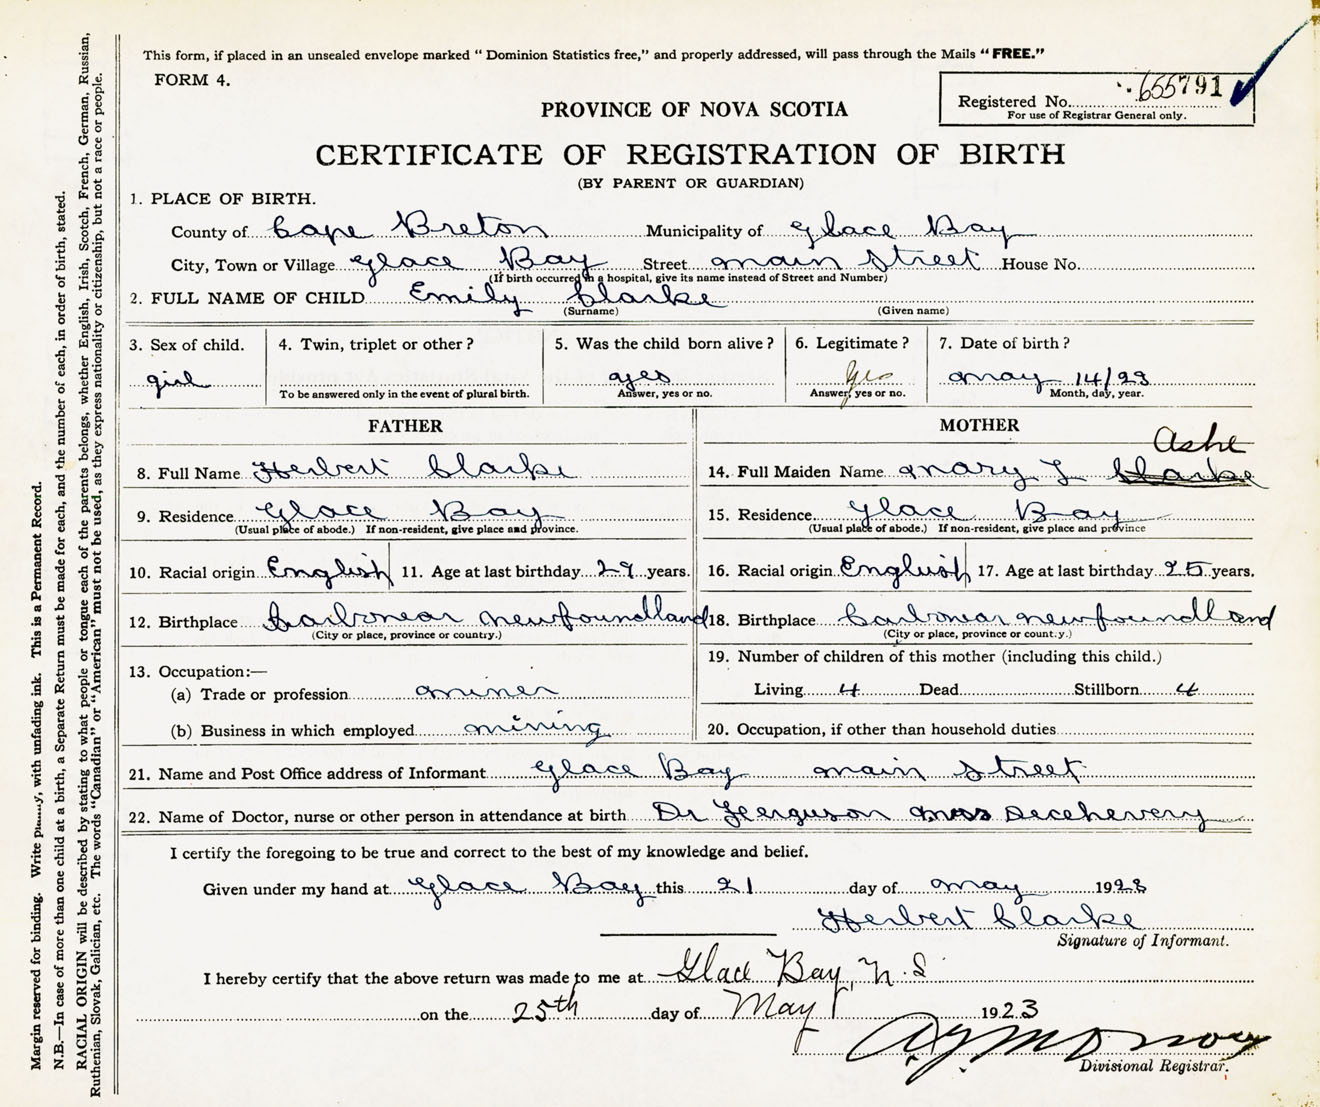 This form, if placed in an unsealed envelope marked “ Dominion Statistics free,” and properly addressed, will pass through the Mails “ FREE.”
FORM 4.
Registered No. 655791
For use of Registrar General only.
PROVINCE OF NOVA SCOTIA
CERTIFICATE OF REGISTRATION OF BIRTH
(BY PARENT OR GUARDIAN)
1. PLACE OF BIRTH.
County of Cape Breton Municipality of Glace Bay
City, Town or Village Glace Bay Street main Street House No.
(If birth occurred in a hospital, give its name instead of Street and Number)
2. FULL NAME OF CHILD Emily Clarke
(Surname) (Given name)
3. Sex of child. 4. Twin, triplet or other ? 5. Was the child born alive ? 6. Legitimate ? 7. Date of birth ?
girl yes Yes may 14/23
To be answered only in the event of plural birth. Answer, yes or no. Answer, yes or no. Month, day, year.
FATHER MOTHER
Ashe
8. Full Name Herbert Clarke 14. Full Maiden Name mary J Clarke
9. Residence Glace Bay 15. Residence Glace Bay
(Usual place of abode.) If non-resident, give place and province. (Usual place of abode.) If non-resident, give place and province
10. Racial origin English 11. Age at last birthday 29 years. 16. Racial origin English 17. Age at last birthday 25 years.
12. Birthplace Carbonear newfoundland 18. Birthplace Carbonear newfoundland
(City or place, province or country.) (City or place, province or count.y.)
13. Occupation:— 19. Number of children of this mother (including this child.)
(a) Trade or profession miner Living 4 Dead Stillborn 4
(b) Business in which employed mining 20. Occupation, if other than household duties
21. Name and Post Office address of Informant Glace Bay main Street
22. Name of Doctor, nurse or other person in attendance at birth Dr Ferguson mrs
I certify the foregoing to be true and correct to the best of my knowledge and belief.
Given under my hand at Glace Bay this 21 day of may 1923
Herbert Clarke
Signature of Informant.
I hereby certify that the above return was made to me at Glace Bay, N.S.
on the 25th day of May 1923
Divisional Registrar.
Margin reserved for binding. Write with unfading ink. This is a Permanent Record.
N.B.—In case of more than one child at a birth, a Separate Return must be made for each, and the number of each, in order of birth, stated.
RACIAL ORIGIN will be described by stating to what people or tongue each of the parents belongs, whether English, Irish, Scotch, French, German, Russian,
Ruthenian, Slovak, Galician, etc. The words “Canadian” or “American” must not be used, as they express nationality or citizenship, but not a race or people.